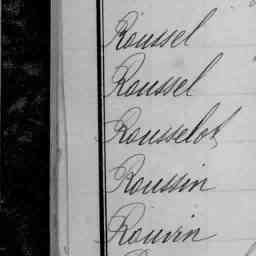 Roussel
Roussel
Rousselot
Roussin
Rouvin